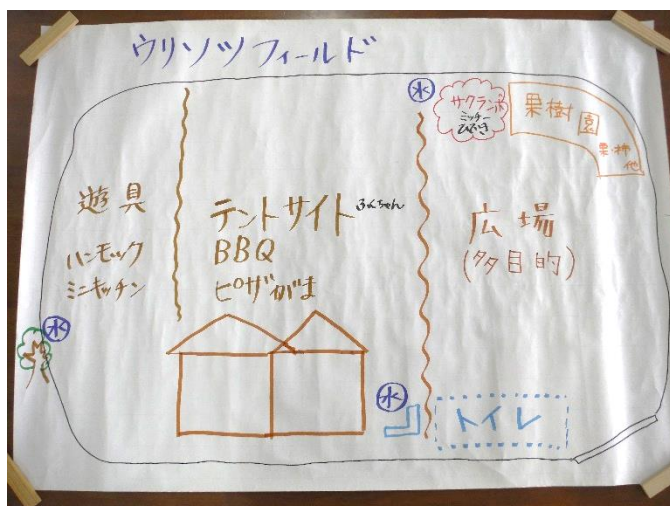 ウリソツフィールド
水
サクランボ
ミッキー
ひびき
果樹園
栗・柿
他
遊具
ハンモック
ミニキッチン
テントサイト
ふんちゃん
BBQ
ピザがま
広場
(多目的)
水
水
トイレ